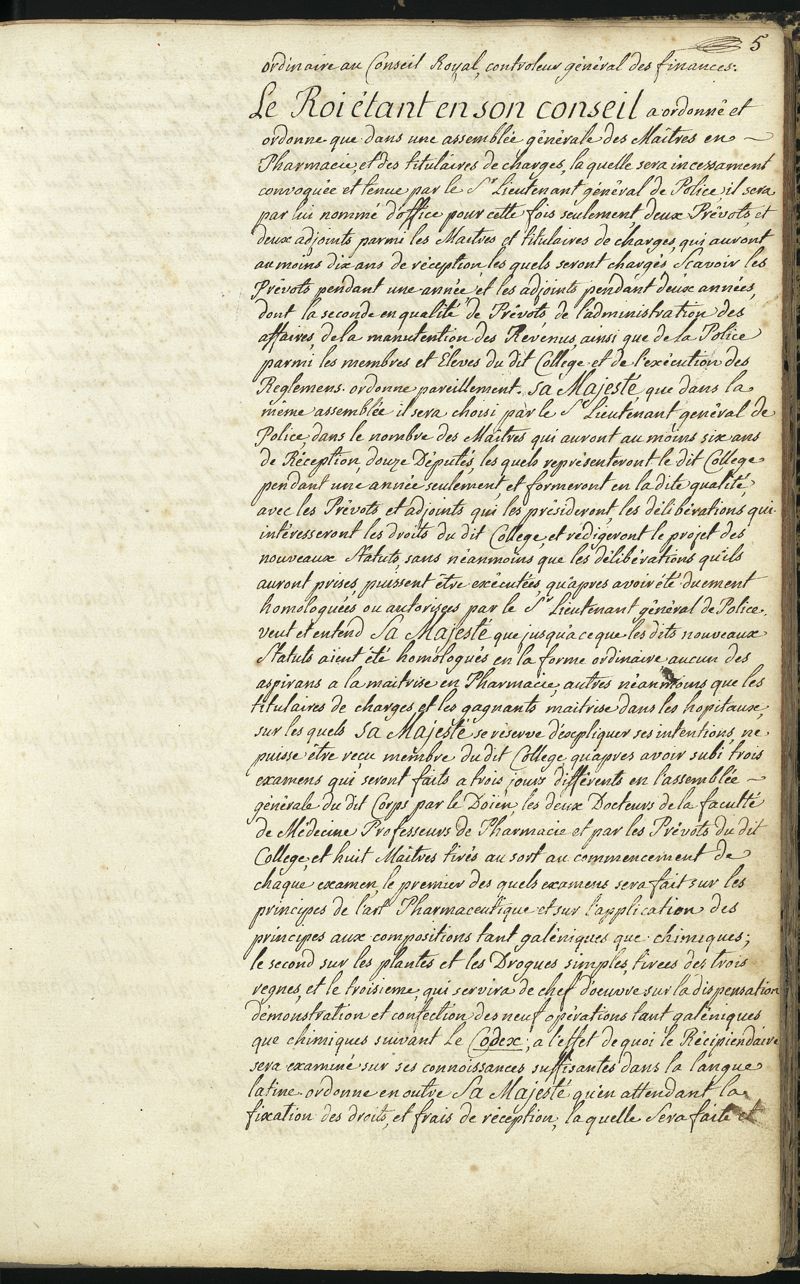 5
ordinaire au Conseil Royal, controleur général des finances.
Le Roi étant en son conseil a ordonné et
ordonne que dans une assemblée générale des Maîtres en
Pharmacie, et des titulaires de charges, la quelle sera incessament
convoquée et tenue par le Sr Lieutenant général de Police, il sera
par lui nommé d'office pour cette fois seulement, deux Prévots, et
deux adjoints parmi les Maitres et titulaires de charges, qui auront
au moins dix ans de réception, les quels seront chargés Scavoir les
Prévots pendant une année, et les adjoints pendant deux années,
dont la seconde en qualité de Prévots de l'administration des
affaires, de la manutention des Revenus, ainsi que de la Police
parmi les membres et Eleves du dit Collège et de l'exécution des
Reglemens. ordonne pareillement. Sa Majesté que dans la
même assemblée il sera choisi par le Sr Lieutenant général de
Police, dans le nombre des Maîtres qui auront au moins six ans
de Réception, douze Députés, les quels représenteront le dit College
pendant une année seulement, et formeront en la dite qualité,
avec les Prévots et adjoints qui les présideront, les délibérations qui
intéresseront les droits du dit College, et rédigeront le projet des
nouveaux Statuts, sans néanmoins que les délibérations qu'ils
auront prises, puissent être exécutées, qu'apres avoir été duement
homologuées ou autorisées par le Sr Lieutenant général de Police.
veut et entend Sa Majesté que jusqu'a ce que les dits nouveaux
Statuts aient été homologués en la forme ordinaire, aucun des
aspirans a la maitrise en Pharmacie, autres néanmoins que les
titulaires de charges, et les gagnants maitrise dans les hopitaux,
sur les quels Sa Majesté se réserve d'expliquer ses intentions, ne
puisse être reçu membre du dit College, qu'apres avoir subi trois
examens qui seront faits a trois jours différents en l'assemblée
générale du dit Corps par le Doïen, les deux Docteurs de la faculté
de Médecine Professeurs de Pharmacie et par les Prévots du dit
College, et huit Maîtres tirés au sort au commencement de
chaque examen, le premier des quels examens sera fait sur les
principes de l'art Pharmaceutique et sur l'application des
principes aux compositions tant galéniques que chimiques;
le second sur les plantes et les Drogues simples, tirées des trois
regnes, et le troisieme, qui servira de chef d'oeuvre sur la dispensation
démonstration et confection des neuf opérations tant galéniques
que chimiques suivant Le Codex; a l'effet de quoi le Récipiendaire
sera examiné sur ses connoissances suffisantes dans la langue
latine. ordonne en outre Sa Majesté qu'en attendant la
fixation des droits, et frais de réception, la quelle Sera faite et